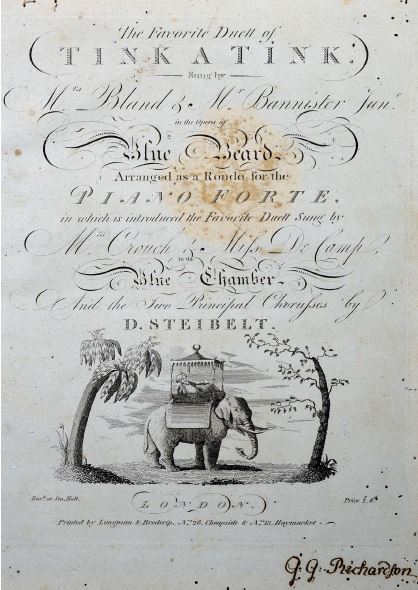 The Favorite Duett of
TINK A TINK.
Sung by
Mrs Bland & Mr Bannister Junr.
in the Opera of
Blue Beard.
Arranged as a Rondo for the
PIANO FORTE,
in which is introduced the Favorite Duett Sung by
Mrs Crouch & Miss De Camp,
in the
Blue Chamber.
And the Two Principal Chorusses by
D. STEIBELT.
Entd. at Sta. Hall.
Price 2.6
LONDON
Printed by Longman & Broderip, No. 26, Cheapside & No. 13, Haymarket
G. G. Richardson